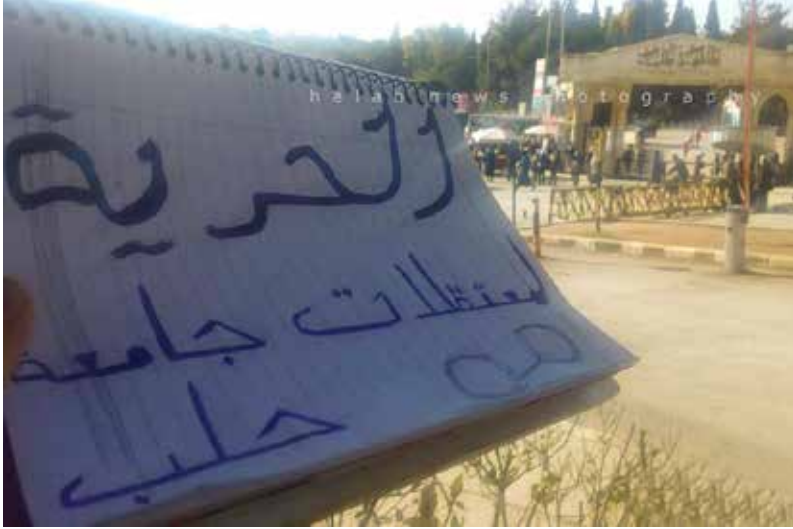 halab news photography
الحرية
لمعتقلات جامعة
حلب